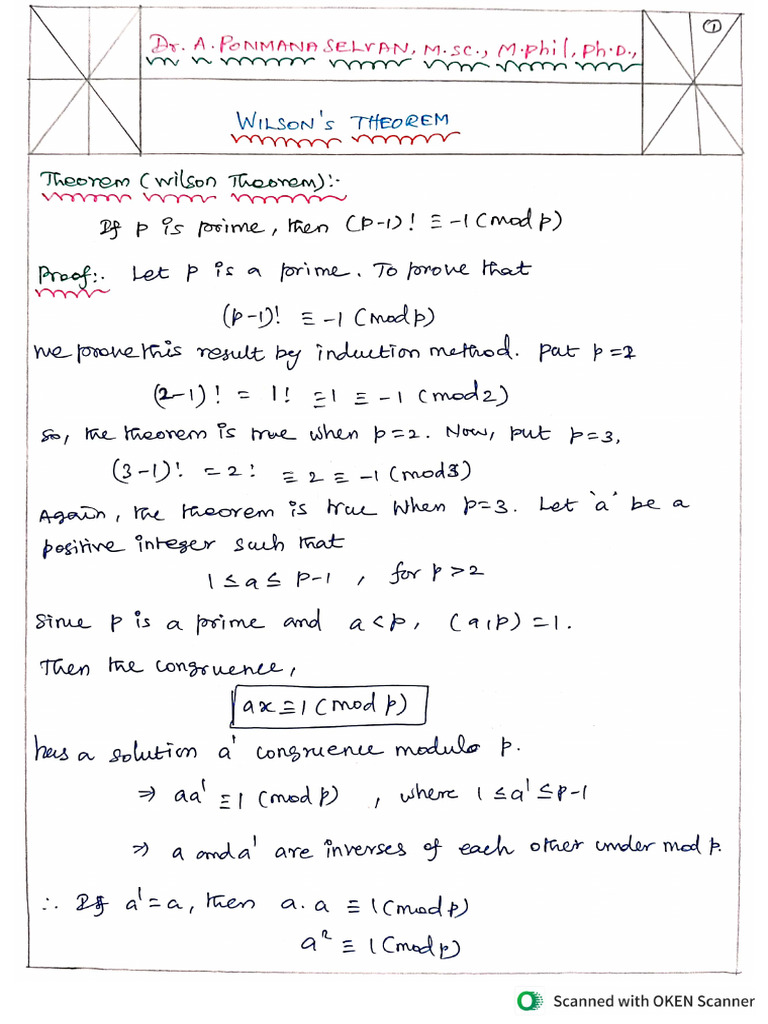 ①
Dr. A. PONMANA SELVAN, M.sc., M.phil, Ph.D.,
WILSON'S THEOREM
Theorem (Wilson Theorem):-
If p is prime, then (p-1)! ≡ -1 (mod p)
Proof:- Let p is a prime. To prove that
(p-1)! ≡ -1 (mod p)
we prove this result by induction method. put p=2
(2-1)! = 1! ≡ 1 ≡ -1 (mod 2)
So, the theorem is true when p=2. Now, put p=3,
(3-1)! = 2! ≡ 2 ≡ -1 (mod 3)
Again, the theorem is true when p=3. Let 'a' be a
positive integer such that
1 ≤ a ≤ p-1 , for p>2
Since p is a prime and a<p, (a,p) = 1.
Then the congruence,
ax ≡ 1 (mod p)
has a solution a' congruence modulo p.
⇒ aa' ≡ 1 (mod p) , where 1 ≤ a' ≤ p-1
⇒ a and a' are inverses of each other under mod p.
∴ If a' = a, then a.a ≡ 1 (mod p)
a² ≡ 1 (mod p)
Scanned with OKEN Scanner